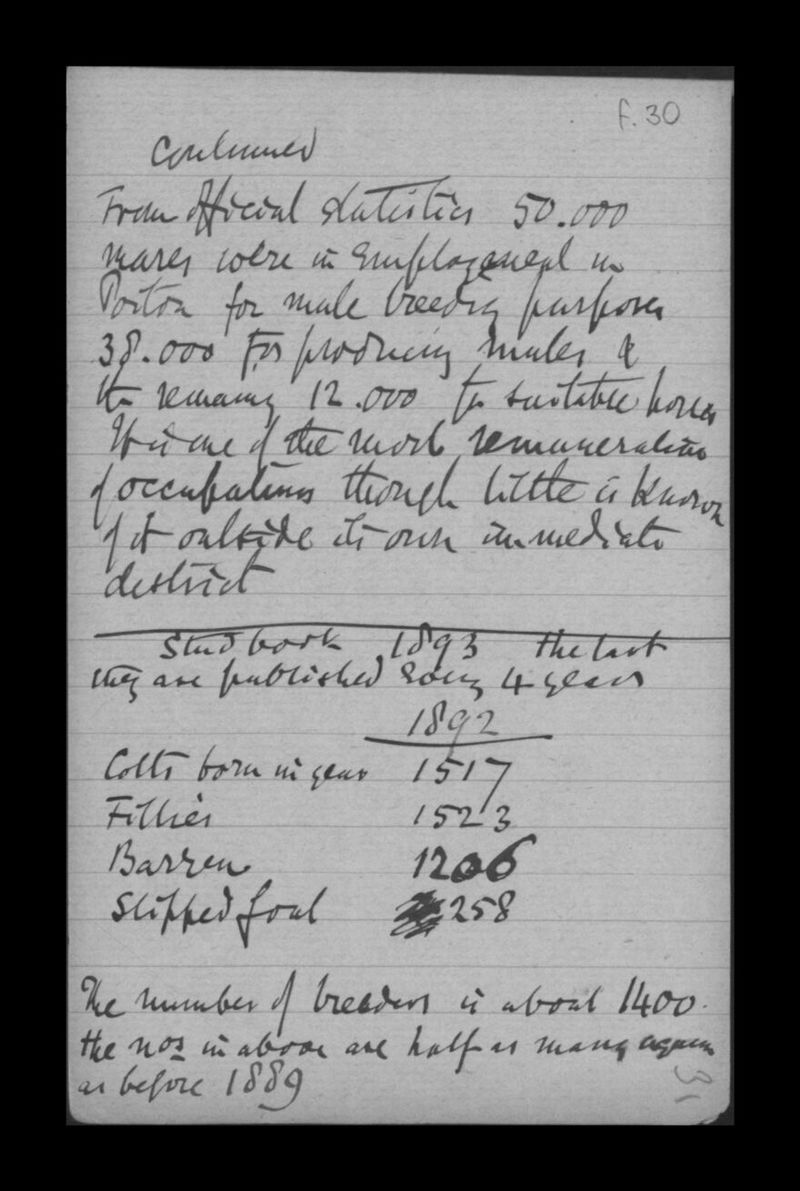 f. 30
Continued
From official statistics 50.000
mares were in employment in
Poitou for mule breeding purposes
38.000 for producing mules &
the remaing 12.000 for suitable horses
It is one of the most remunerative
of occupations though little is known
of it outside its own immediate
district
Stud book 1893 the last
they are published every 4 years
1892
Colts born in year 1517
Fillies 1523
Barren 1206
Slipped foal 258
The number of breeders is about 1400.
the nos in above are half as many again
as before 1889